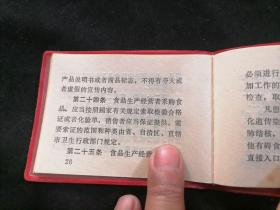 产品说明书或者商品标志，不得有夸大或
者虚假的宣传内容。
第二十四条 食品生产经营者采购食
品，应当按照国家有关规定索取检验合格
证或者化验单，销售者应当保证提供。需
要索证的范围和种类由省、自治区、直辖
市卫生行政部门规定。
第二十五条 食品生产经营
26
必须进行
加工作的
检查，取
凡患
化道传染
肺结核，
他有碍食
直接入口